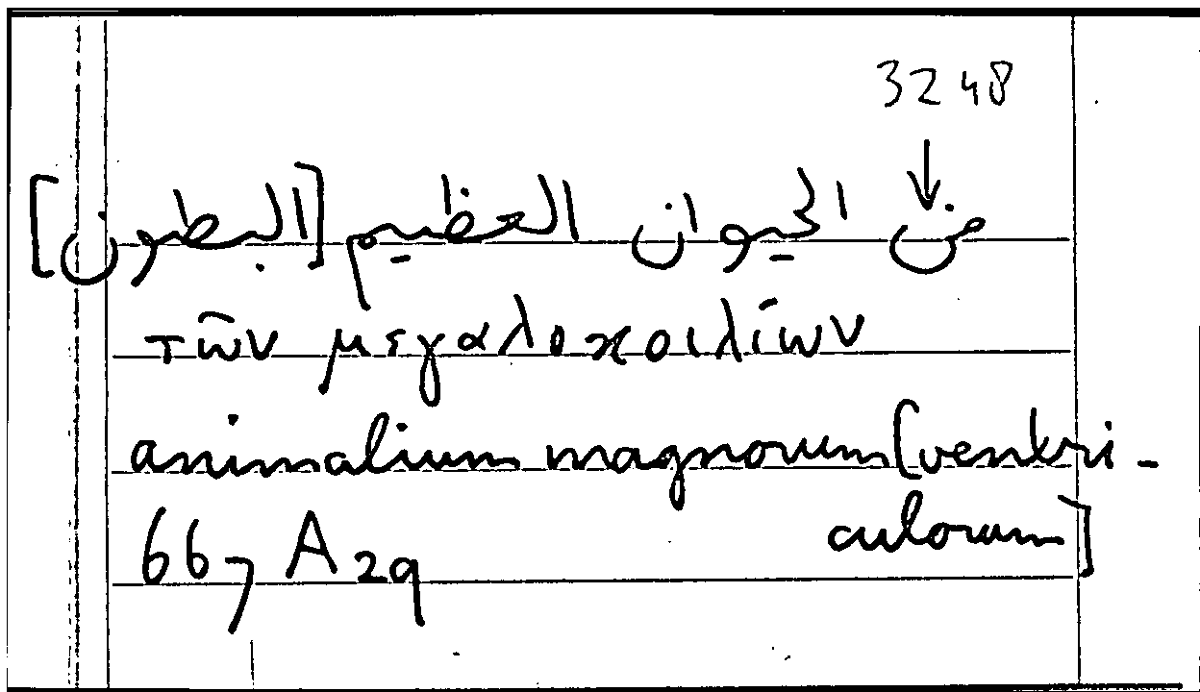 3248
↓
من الحيوان العظيم [البطون]
τῶν μεγαλοκοιλίων
animalium magnorum [ventri-
culorum]
667 A 29